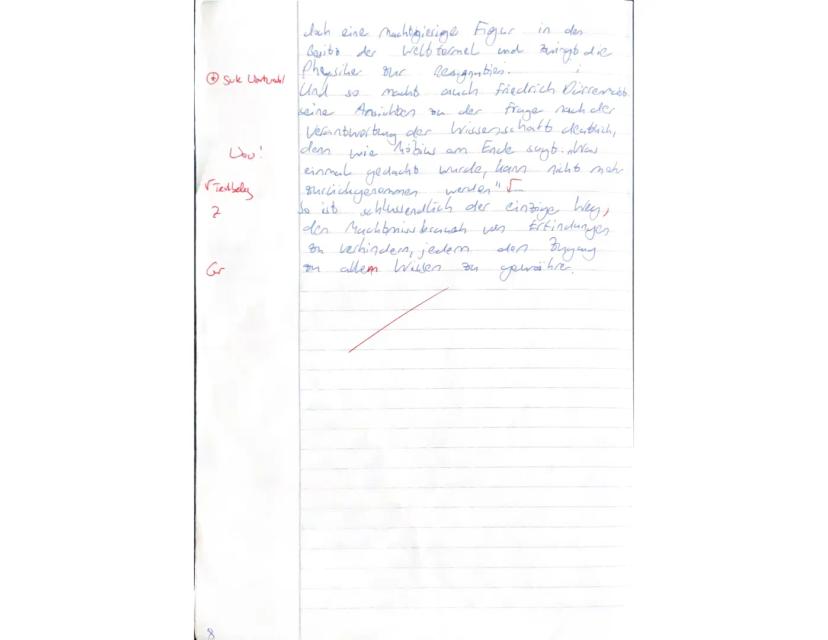 doch eine machtgierige Figur in den
Besitz der Weltformel und zwingt die
Physiker zur Resignation.
⊛ gute Wortwahl
Und so macht auch Friedrich Dürrenmatt
seine Ansichten zu der Frage nach der
Verantwortung der Wissenschaft deutlich,
Wow!
denn wie Möbius am Ende sagt: „Was
einmal gedacht wurde, kann nicht mehr
√ Textbeleg
zurückgenommen werden" √
Z
So ist schlussendlich der einzige Weg,
den Machtmissbrauch von Erfindungen
zu verhindern, jedem den Zugang
Gr
zu allem Wissen zu gewähren.
8